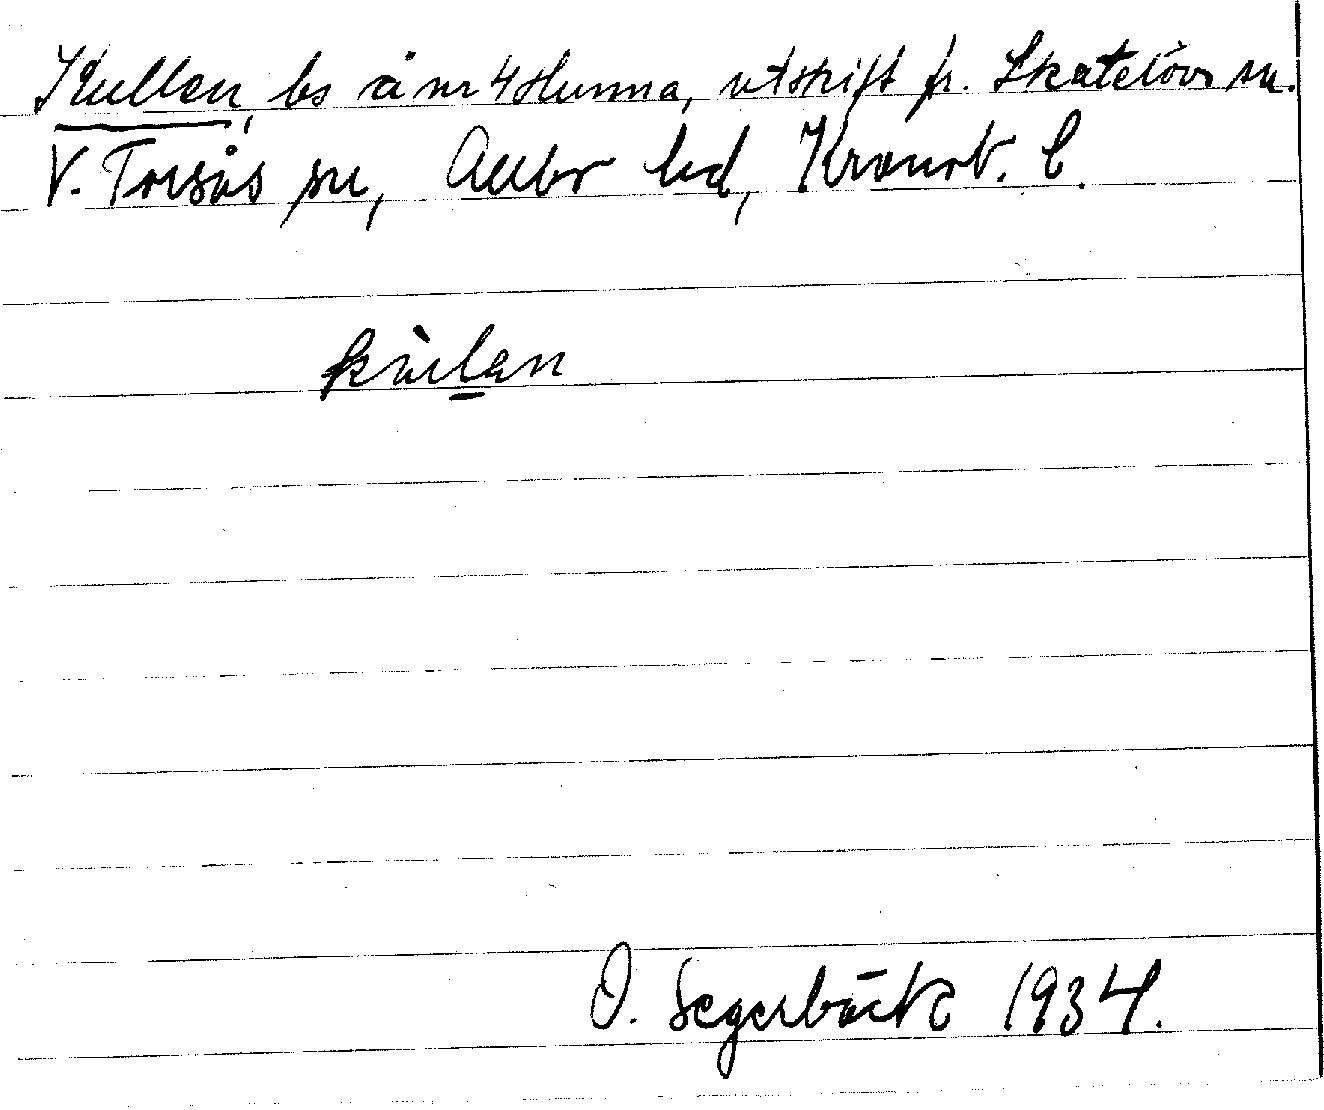 Kullen, bs å nr 4 Hunna, utskift fr. Skatelövs sn.
V. Torsås sn, Allbo hd, Kronob. l.
kùlan
O. Segerbäck 1934.